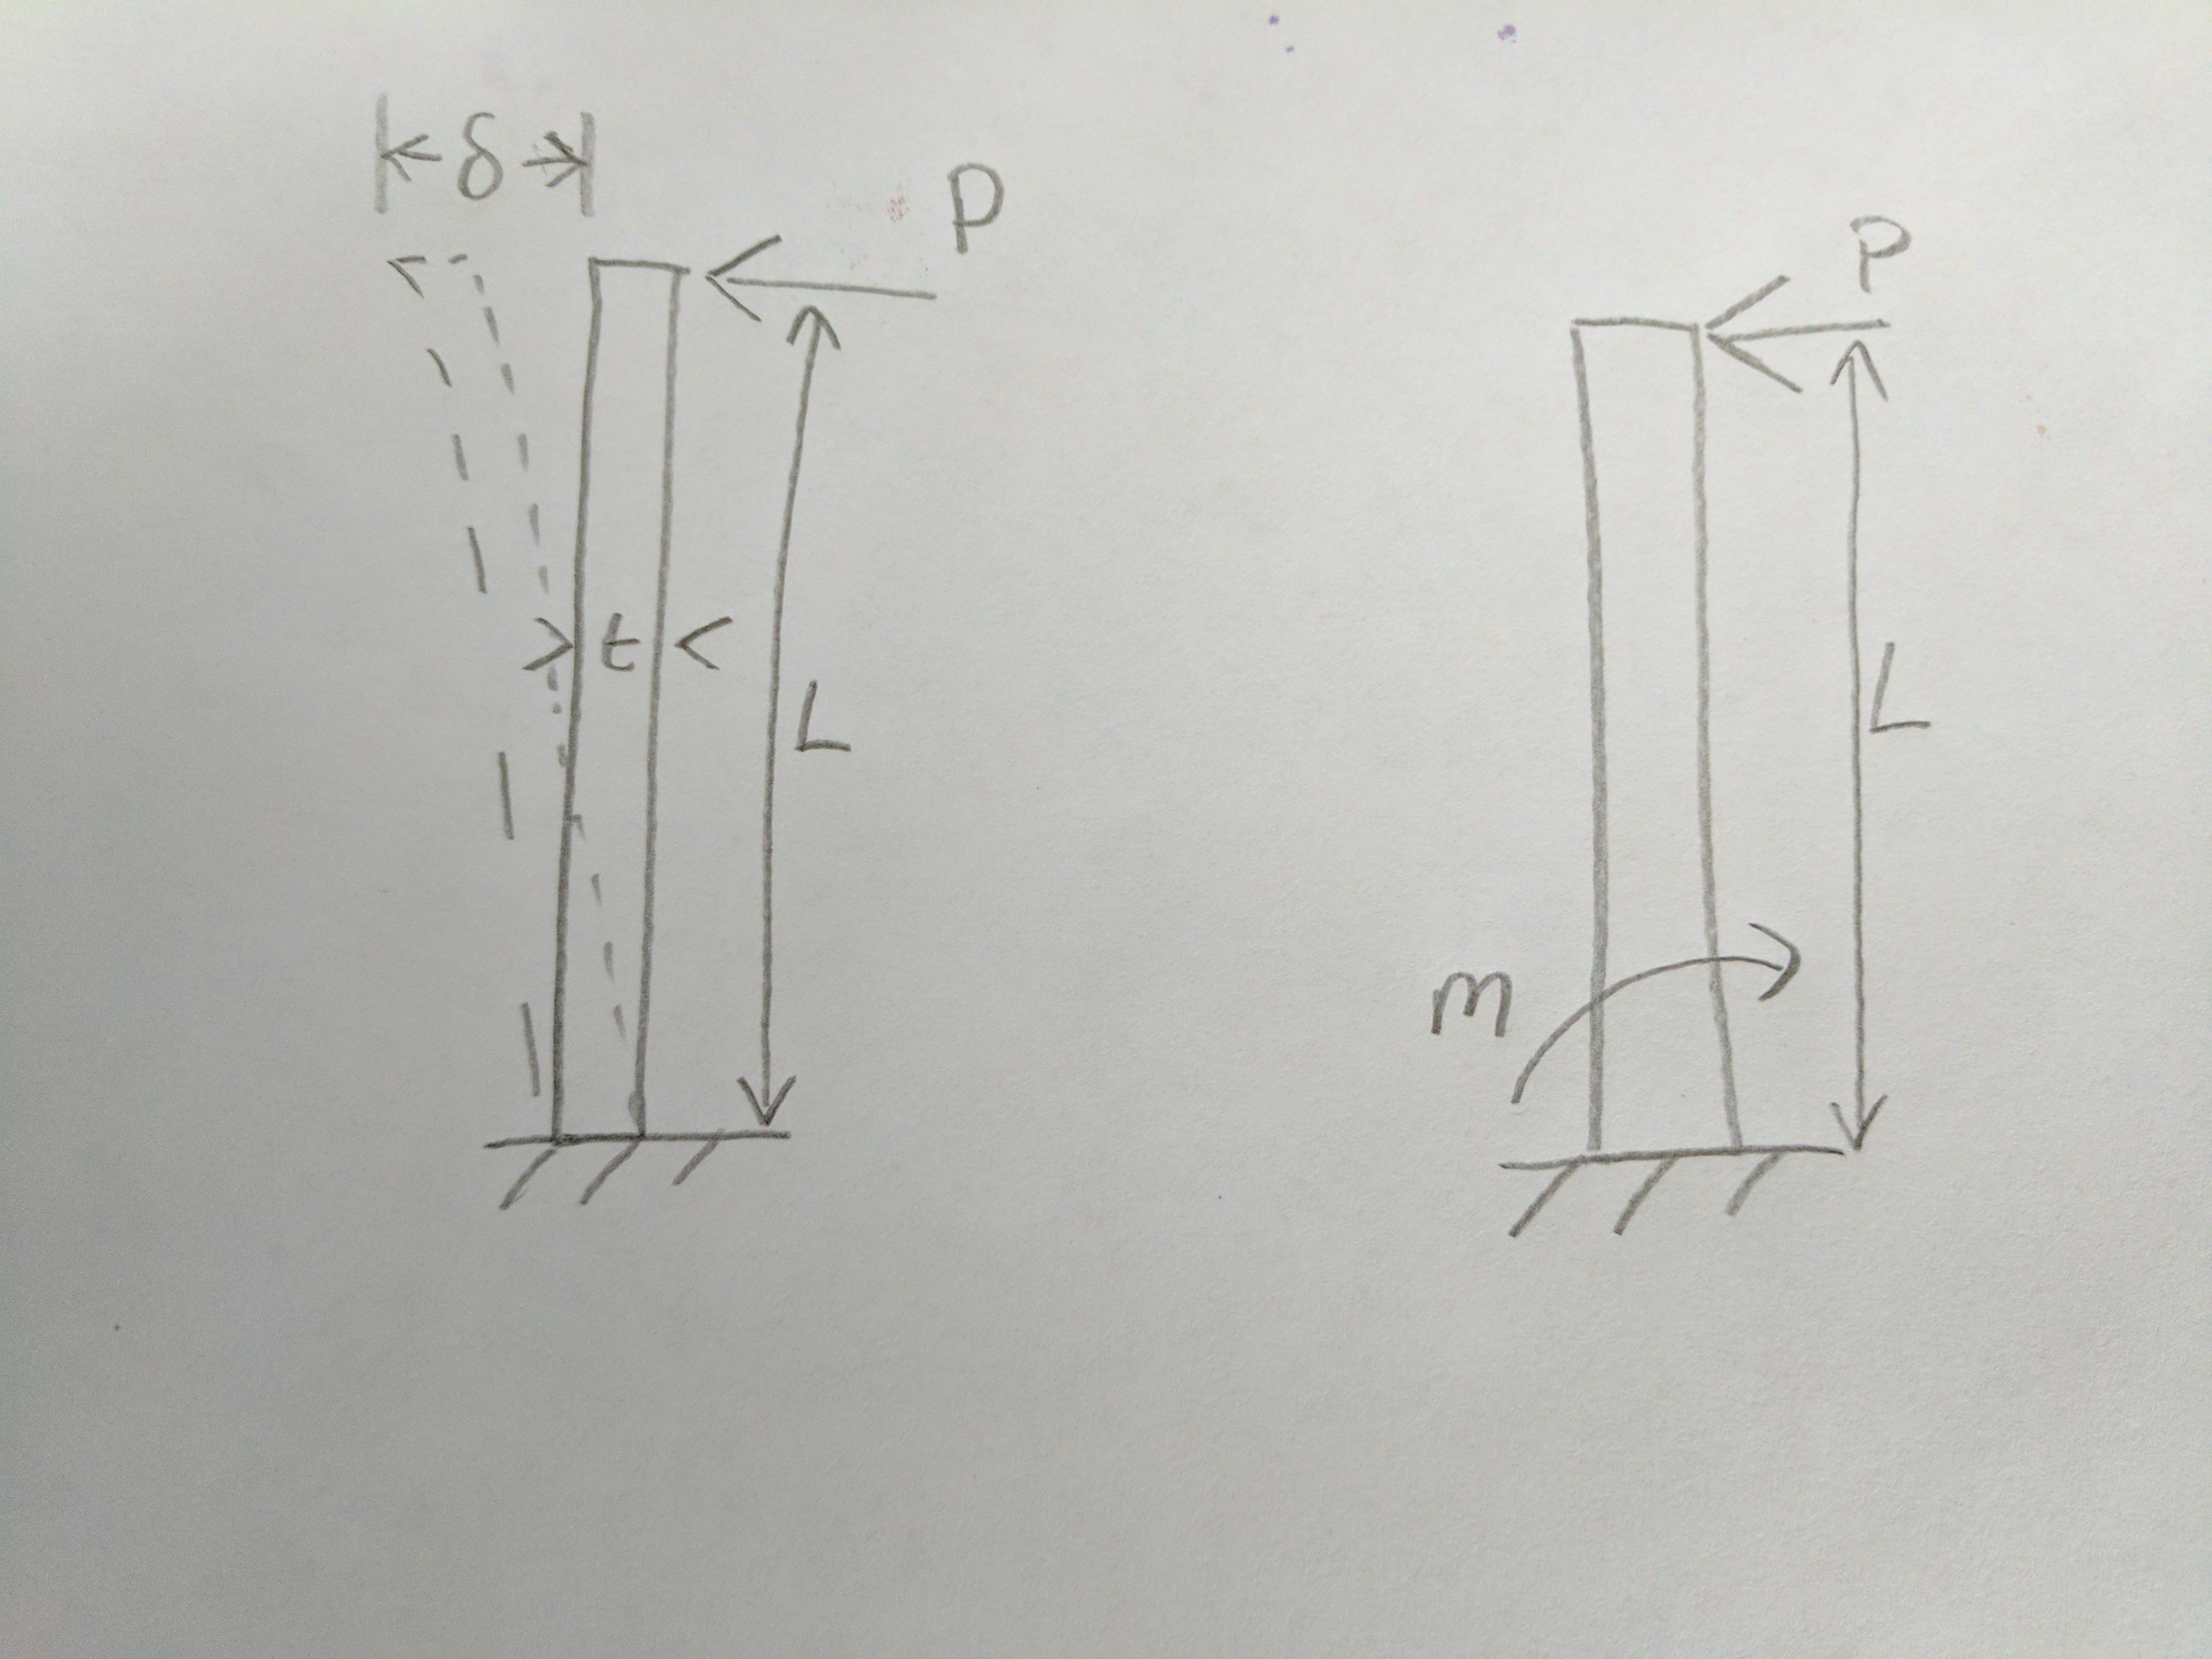 δ
P
t
L
P
L
m